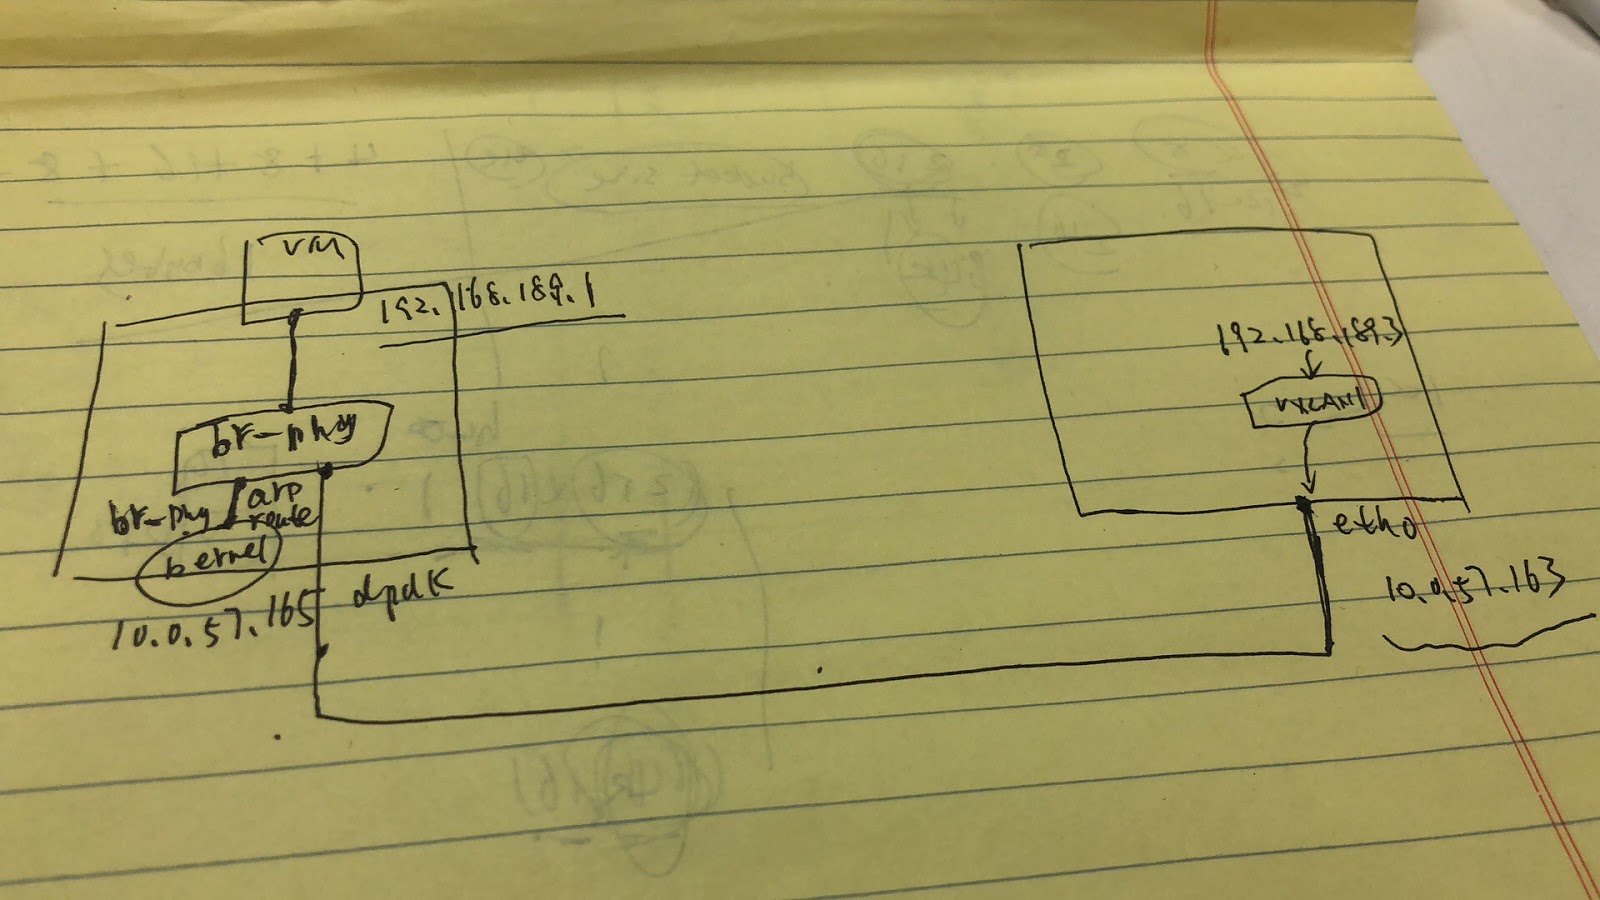 VM
192.168.189.1
br-phy
br-phy
arp
route
kernel
10.0.57.165
dpdk
192.168.189.3
VXLAN1
eth0
10.0.57.163